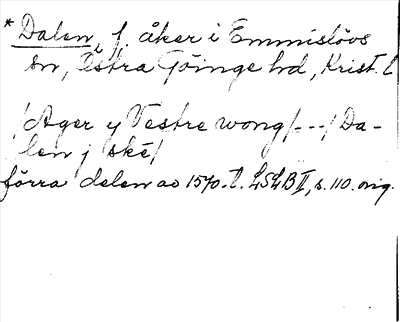 * Dalen, f. åker i Emmislövs
sn, Östra Göinge hd, Krist. l
/Ager y Vestre wong/---/Da-
len j ské/
förra delen av 1570-t. LSLB II, s. 110. orig.